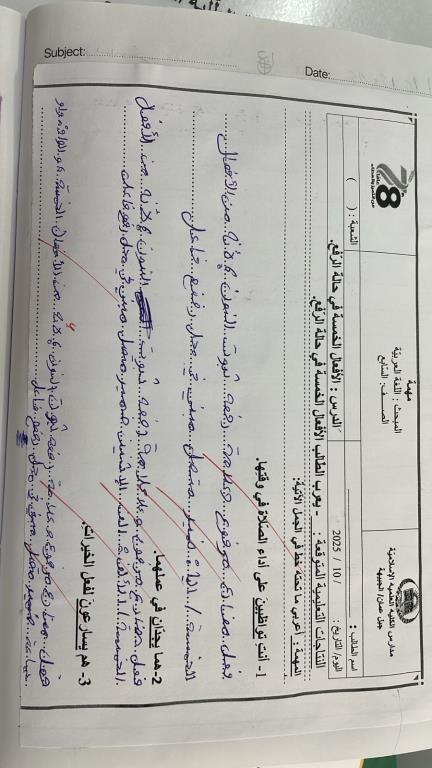 Subject:
Date:
مدارس الكلية العلمية الإسلامية
جبل عمان/الجبيهة
مهمة
المبحث : اللغة العربية
الصــف: السابع
اسم الطالب :
الشعبة : ( )
اليوم/التاريخ: / 10 / 2025
الدرس : الأفعال الخمسة في حالة الرفع.
النتاجات التعليمية المتوقعة : - يعرب الطالب الأفعال الخمسة في حالة الرفع.
المهمة : أعربي ما تحته خط في الجمل الآتية:
1- أنت تواظبين على أداء الصلاة في وقتها.
فعل مضارع مرفوع وعلامة رفعه ثبوت النون لأنه من الأفعال
الخمسة / الياء ضمير متصل مبني في محل رفع فاعل
2- هما يجدّان في عملهما.
فعل مضارع مرفوع وعلامة رفعه ثبوت النون لأنه من الأفعال
الخمسة / ألف الاثنين ضمير متصل مبني في محل رفع فاعل
3- هم يسارعون لفعل الخيرات.
فعل مضارع مرفوع وعلامة رفعه ثبوت النون لأنه من الأفعال الخمسة
ضمير متصل مبني في محل رفع فاعل